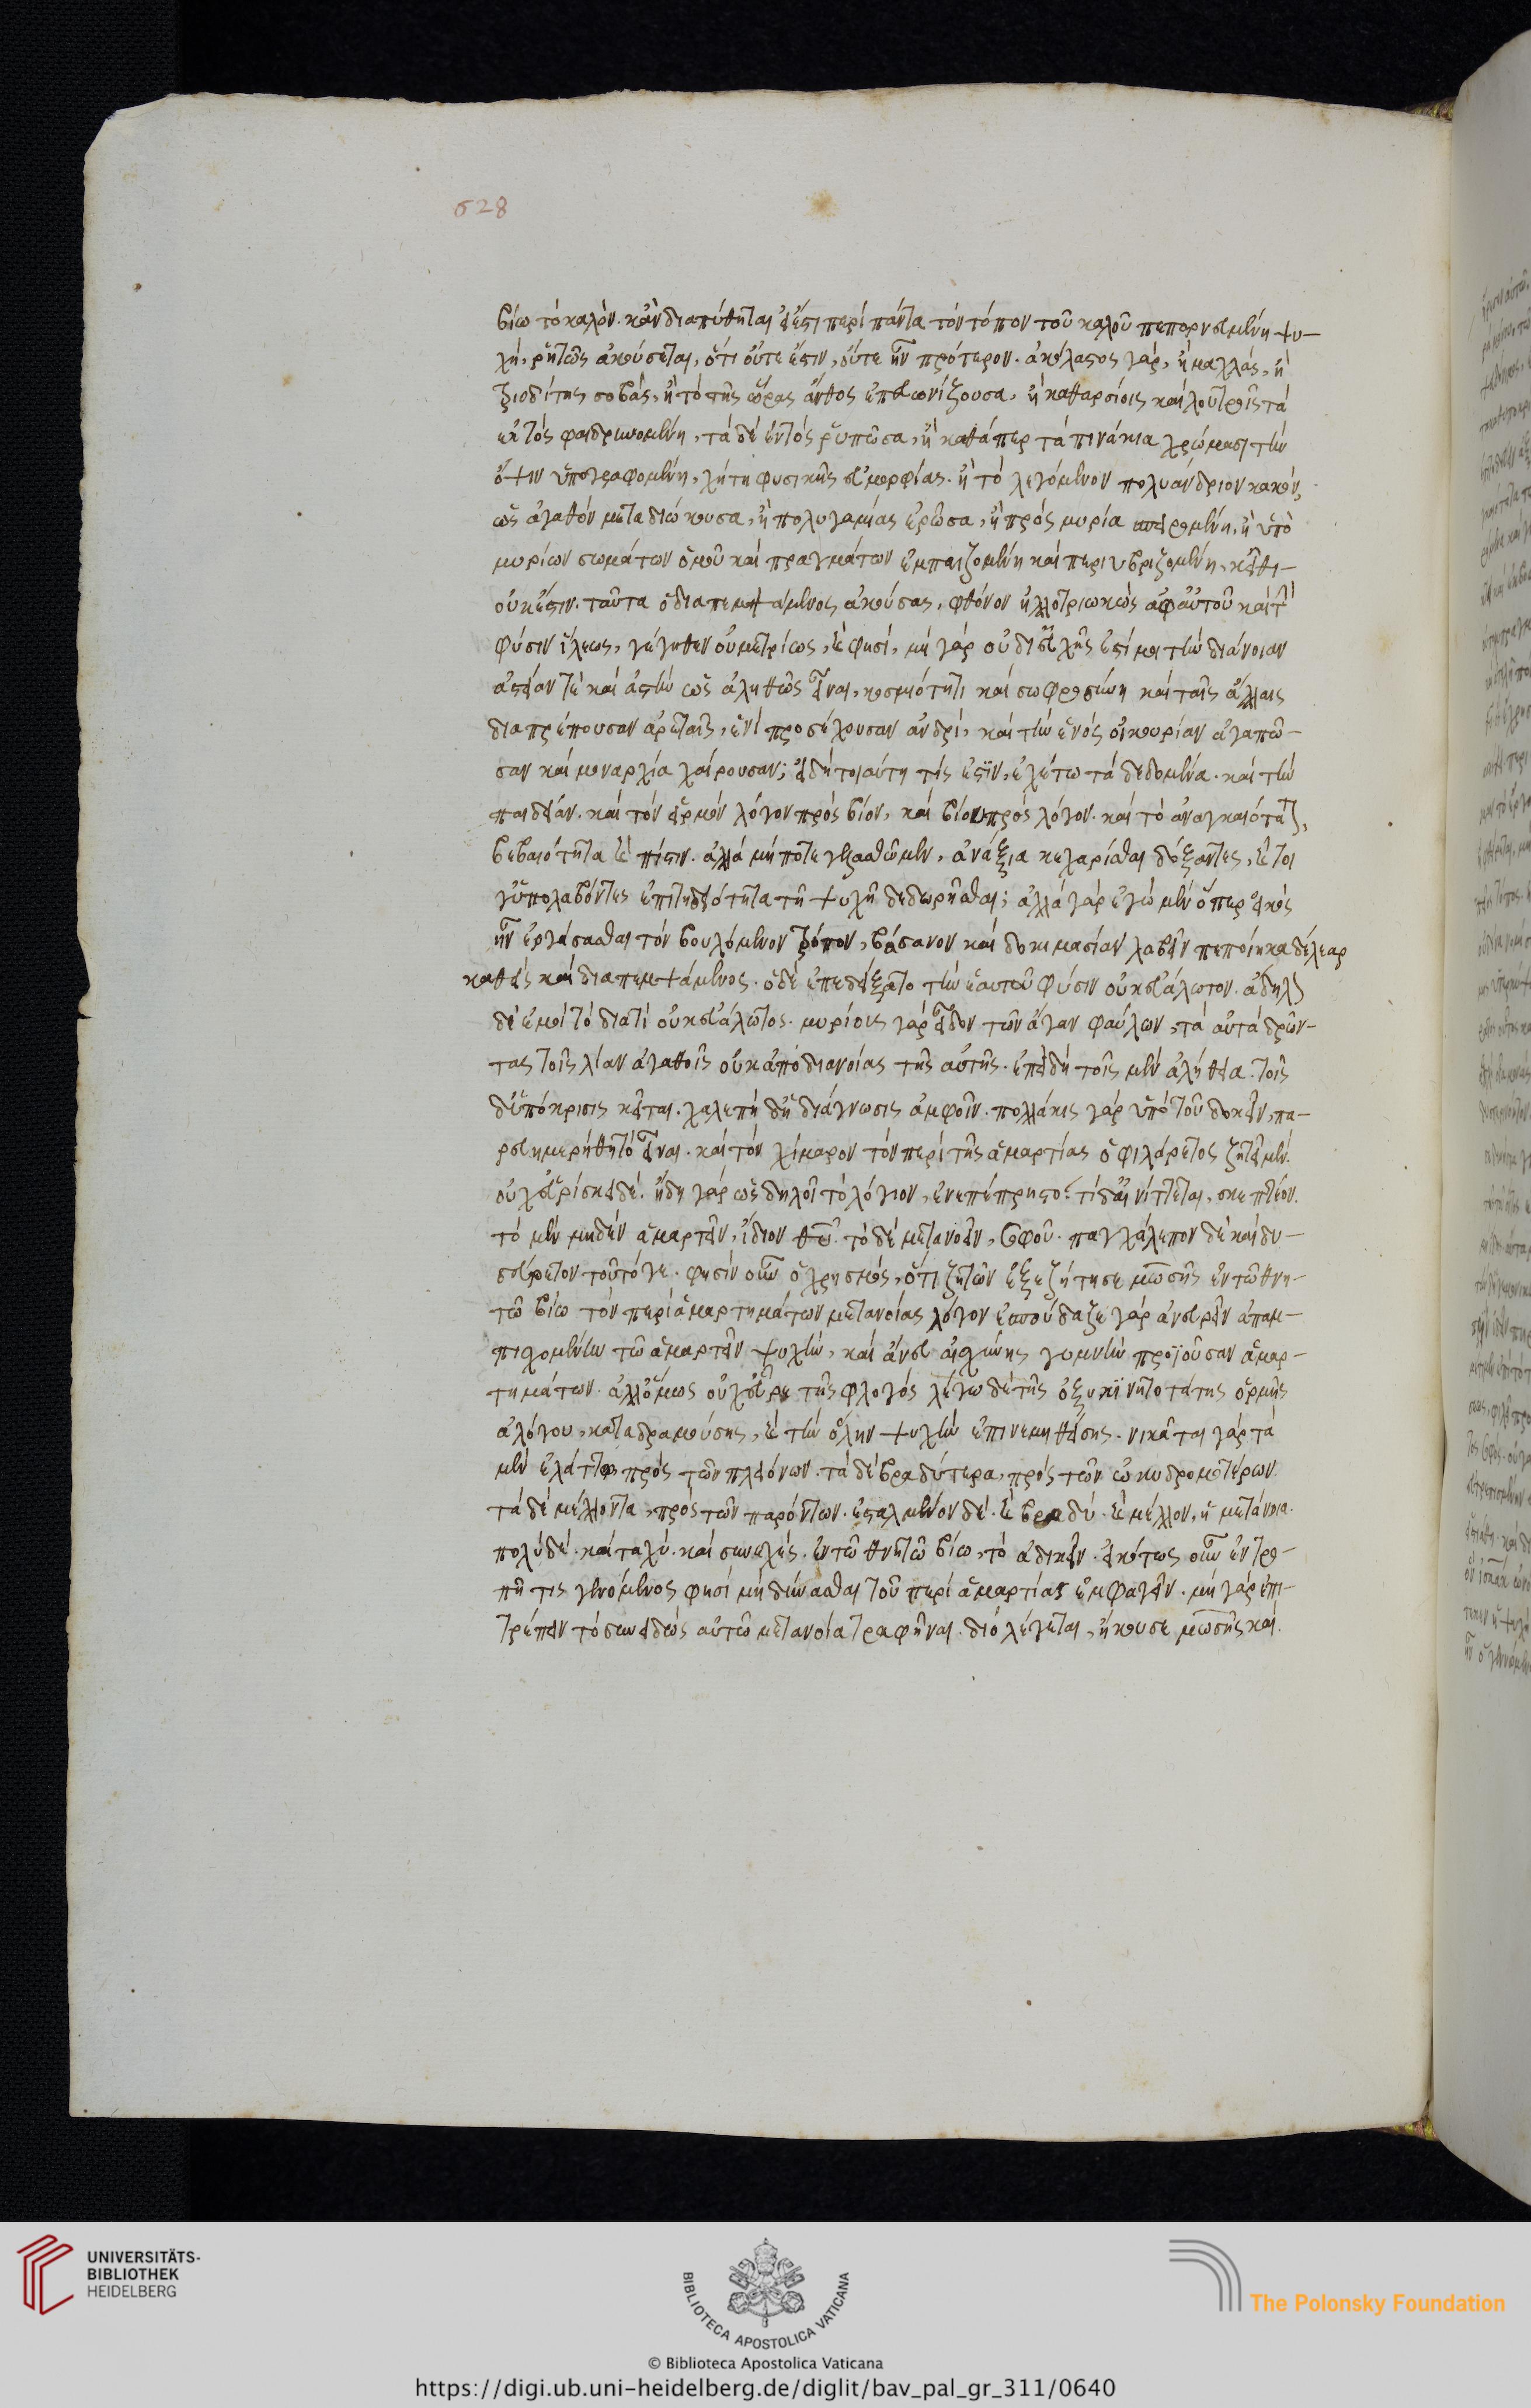 628
βίω τὸ καλὸν. κἂν διαπύθηται εἰ ἔστι περὶ πάντα τὸν τόπον τοῦ καλοῦ πεπορνευμένη ψυ-
χὴ, ῥητῶς ἀκούσεται, ὅτι οὔτε ἔστιν, οὔτε ἦν πρότερον. ἀκόλαστος γὰρ, ἢ μαχλὰς, ἢ
τριοδίτης σοβὰς, ἢ τὸ τῆς ὥρας ἄνθος ἐπευωνίζουσα, ἢ καθαρσίοις καὶ λουτροῖς τὰ
ἐκτὸς φαιδρυνομένη, τὰ δὲ ἐντὸς ῥυπῶσα, ἢ καθάπερ τὰ πινάκια χρώμασι τὴν
ὄψιν ὑπογραφομένη, χήτη φυσικῆς εὐμορφίας. ἢ τὸ λεγόμενον πολυάνδριον κακὸν,
ὡς ἀγαθὸν μεταδιώκουσα, ἢ πολυγαμίας ἐρῶσα, ἢ πρὸς μυρία σπειρομένη, ἢ ὑπὸ
μυρίων σωμάτων ὁμοῦ καὶ πραγμάτων ἐμπαιζομένη καὶ περιυβριζομένη, κεῖθι
οὐκ ἔστιν. ταῦτα ὁ διαπεμψάμενος ἀκούσας, φθόνον ἠλλοτριωκὼς ἀφ' αὑτοῦ καὶ τὴν
φύσιν ἵλεως, γέγηθεν οὐ μετρίως, καὶ φησὶ, μὴ γὰρ οὐ δι' εὐχῆς ἐστί μοι τὴν διάνοιαν
ἀστείαν τὲ καὶ ἀστὴν ὡς ἀληθῶς εἶναι, κοσμιότητι καὶ σωφροσύνη καὶ ταῖς ἄλλαις
διαπρέπουσαν ἀρεταῖς, ἑνὶ προσέχουσαν ἀνδρὶ, καὶ τὴν ἑνὸς οἰκουρίαν ἀγαπῶ-
σαν καὶ μοναρχία χαίρουσαν; εἰ δὴ τοιαύτη τίς ἐστϊν, ἐχέτω τὰ δεδομένα. καὶ τὴν
παιδείαν. καὶ τὸν εἱρμὸν λόγου πρὸς βίον, καὶ βίου πρὸς λόγον. καὶ τὸ ἀναγκαιότατον,
βεβαιότητα καὶ πίστιν. ἀλλὰ μήποτε χλευασθῶμεν, ἀνάξια κεχαρίσθαι δόξαντες, καίτοι
γ' ὑπολαβόντες ἐπιτηδειότητα τῆ ψυχῆ δεδωρῆσθαι; ἀλλὰ γὰρ ἐγὼ μὲν ὅπερ εἰκὸς
ἦν ἐργάσασθαι τὸν βουλόμενον τρόπον, βάσανον καὶ δοκιμασίαν λαβεῖν πεποίηκα δέλεαρ
καθεὶς καὶ διαπεμψάμενος. ὁ δὲ ἐπεδείξατο τὴν ἑαυτοῦ φύσιν οὐκ εὐάλωτον. ἄδηλον
δὲ ἐμοὶ τὸ διατὶ οὐκ εὐάλωτος. μυρίους γὰρ εἶδον τῶν ἄγαν φαύλων, τὰ αὐτὰ δρῶν-
τας τοῖς λίαν ἀγαθοῖς οὐκ ἀπὸ διανοίας τῆς αὐτῆς. ἐπειδὴ τοῖς μὲν ἀλήθεια. τοῖς
δ' ὑπόκρισις κεῖται. χαλεπὴ δ' ἡ διάγνωσις ἀμφοῖν. πολλάκις γὰρ ὑπὸ τοῦ δοκεῖν, πα-
ρευημερήθη τὸ εἶναι. καὶ τὸν χίμαρον τὸν περὶ τῆς ἁμαρτίας ὁ φιλάρετος ζητεῖ μέν.
οὐχ εὑρίσκει δέ. ἤδη γὰρ ὡς δηλοῖ τὸ λόγιον, ἐνεπέπρηστο. τί δ' αἰνίττεται, σκεπτέον.
τὸ μὲν μηδὲν ἁμαρτεῖν, ἴδιον θῦ. τὸ δὲ μετανοεῖν, σοφοῦ. παγχάλεπον δὲ καὶ δυ-
σεύρετον τοῦτό γε. φησὶν οὖν ὁ χρησμὸς, ὅτι ζητῶν ἐξεζήτησε μωσῆς ἐν τῶ θνη-
τῶ βίω τὸν περὶ ἁμαρτημάτων μετανοίας λόγον ἐσπούδαζε γὰρ ἀνευρεῖν ἀπαμ-
πισχομένην τῶ ἁμαρτεῖν ψυχὴν, καὶ ἄνευ αἰσχύνης γυμνὴν προϊοῦσαν ἁμαρ-
τημάτων. ἀλλ' ὅμως οὐχ εὗρε τῆς φλογὸς λέγω δὲ τῆς ὀξυκϊνητοτάτης ὁρμῆς
ἀλόγου, καταδραμούσης, καὶ τὴν ὅλην ψυχὴν ἐπινεμηθείσης. νικᾶται γὰρ τὰ
μὲν ἐλάττω πρὸς τῶν πλειόνων. τὰ δὲ βραδύτερα, πρὸς τῶν ὠκυδρομωτέρων.
τὰ δὲ μέλλοντα, πρὸς τῶν παρόντων. ἐσταλμένον δὲ. καὶ βραδὺ. καὶ μέλλον, ἡ μετάνοια.
πολὺ δὲ. καὶ ταχὺ. καὶ συνεχὲς. ἐν τῶ θνητῶ βίω, τὸ ἀδικεῖν. εἰκότως οὖν ἐν τρο-
πῆ τις γενόμενος φησὶ μὴ δύνασθαι τοῦ περὶ ἁμαρτίας ἐμφαγεῖν. μὴ γὰρ ἐπι-
τρέπειν τὸ συνειδὸς αὐτῶ μετανοία τραφῆναι. διὸ λέγεται, ἤκουσε μωσῆς καὶ
UNIVERSITÄTS-
BIBLIOTHEK
HEIDELBERG
BIBLIOTECA APOSTOLICA VATICANA
The Polonsky Foundation
© Biblioteca Apostolica Vaticana
https://digi.ub.uni-heidelberg.de/diglit/bav_pal_gr_311/0640